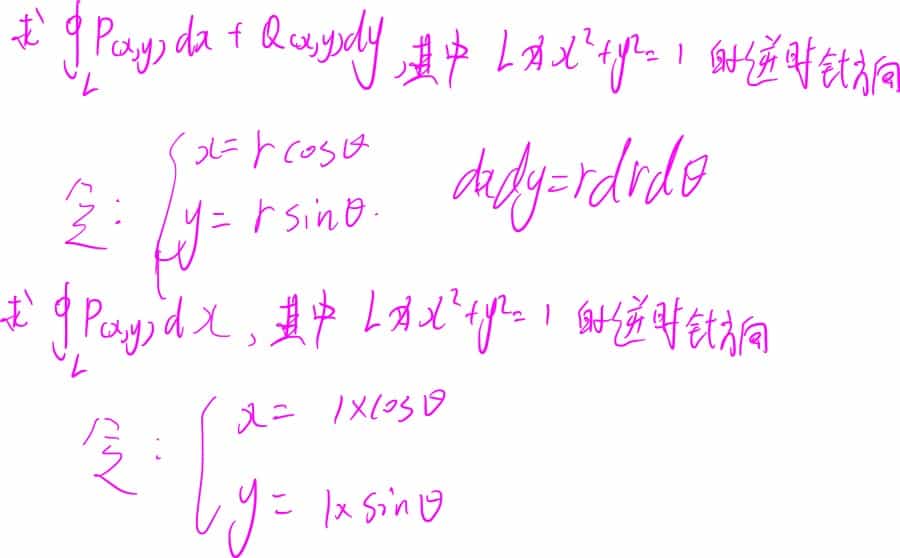 求 ∮_L P(x,y)dx + Q(x,y)dy, 其中 L为x²+y²=1 的逆时针方向
令: { x=rcosθ dxdy=rdrdθ
y=rsinθ.
求 ∮_L P(x,y)dx, 其中 L为x²+y²=1 的逆时针方向
令: { x= 1×cosθ
y= 1×sinθ